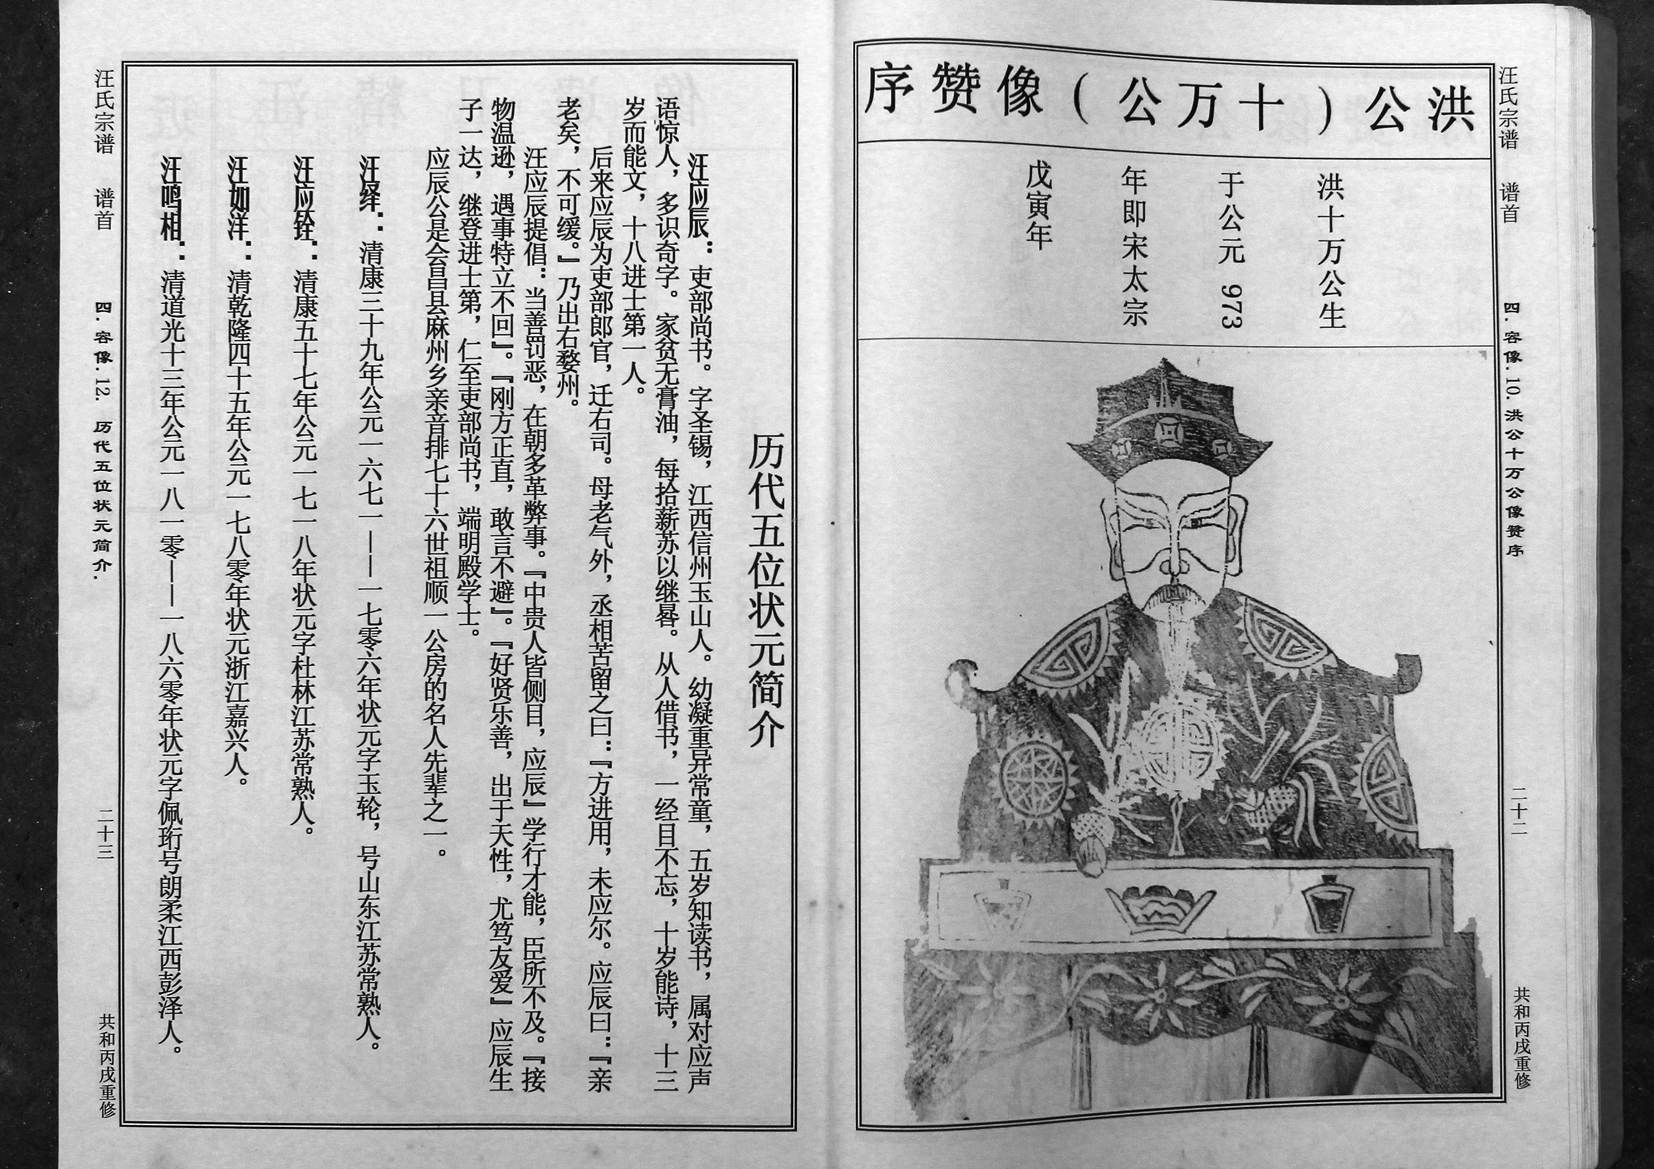 汪氏宗谱 谱首 四.容像.10.洪公十万公像赞序 二十二 共和丙戌重修
洪公(十万公)像赞序
洪十万公生
于公元 973
年即宋太宗
戊寅年
历代五位状元简介
汪应辰：吏部尚书。字圣锡，江西信州玉山人。幼凝重异常童，五岁知读书，属对应声
语惊人，多识奇字。家贫无膏油，每拾薪苏以继晷。从人借书，一经目不忘，十岁能诗，十三
岁而能文，十八进士第一人。
后来应辰为吏部郎官，迁右司。母老气外，丞相苦留之曰：『方进用，未应尔。应辰曰：『亲
老矣，不可缓。』乃出右婺州。
汪应辰提倡：当善罚恶，在朝多革弊事。『中贵人皆侧目，应辰』学行才能，臣所不及。『接
物温逊，遇事特立不回』。『刚方正直，敢言不避』。『好贤乐善，出于天性，尤笃友爱』应辰生
子一达，继登进士第，仁至吏部尚书，端明殿学士。
应辰公是会昌县麻州乡亲音排七十六世祖顺一公房的名人先辈之一。
汪绎：清康三十九年公元一六七一——一七零六年状元字玉轮，号山东江苏常熟人。
汪应铨：清康五十七年公元一七一八年状元字杜林江苏常熟人。
汪如洋：清乾隆四十五年公元一七八零年状元浙江嘉兴人。
汪鸣相：清道光十三年公元一八一零——一八六零年状元字佩珩号朗柔江西彭泽人。
汪氏宗谱 谱首 四.容像.12.历代五位状元简介. 二十三 共和丙戌重修